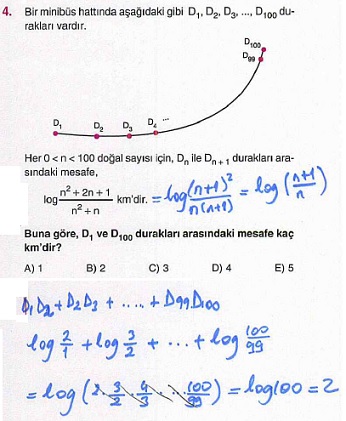 4. Bir minibüs hattında aşağıdaki gibi D₁, D₂, D₃, ..., D₁₀₀ du-
rakları vardır.
D₁₀₀
D₉₉
D₁ D₂ D₃ D₄ ...
Her 0 < n < 100 doğal sayısı için, Dₙ ile Dₙ₊₁ durakları ara-
sındaki mesafe,
log (n² + 2n + 1)/(n² + n) km'dir. = log (n+1)²/(n(n+1)) = log ((n+1)/n)
Buna göre, D₁ ve D₁₀₀ durakları arasındaki mesafe kaç
km'dir?
A) 1 B) 2 C) 3 D) 4 E) 5
D₁D₂ + D₂D₃ + ..... + D₉₉D₁₀₀
log 2/1 + log 3/2 + ... + log 100/99
= log (2 · 3/2 · 4/3 ... 100/99) = log100 = 2